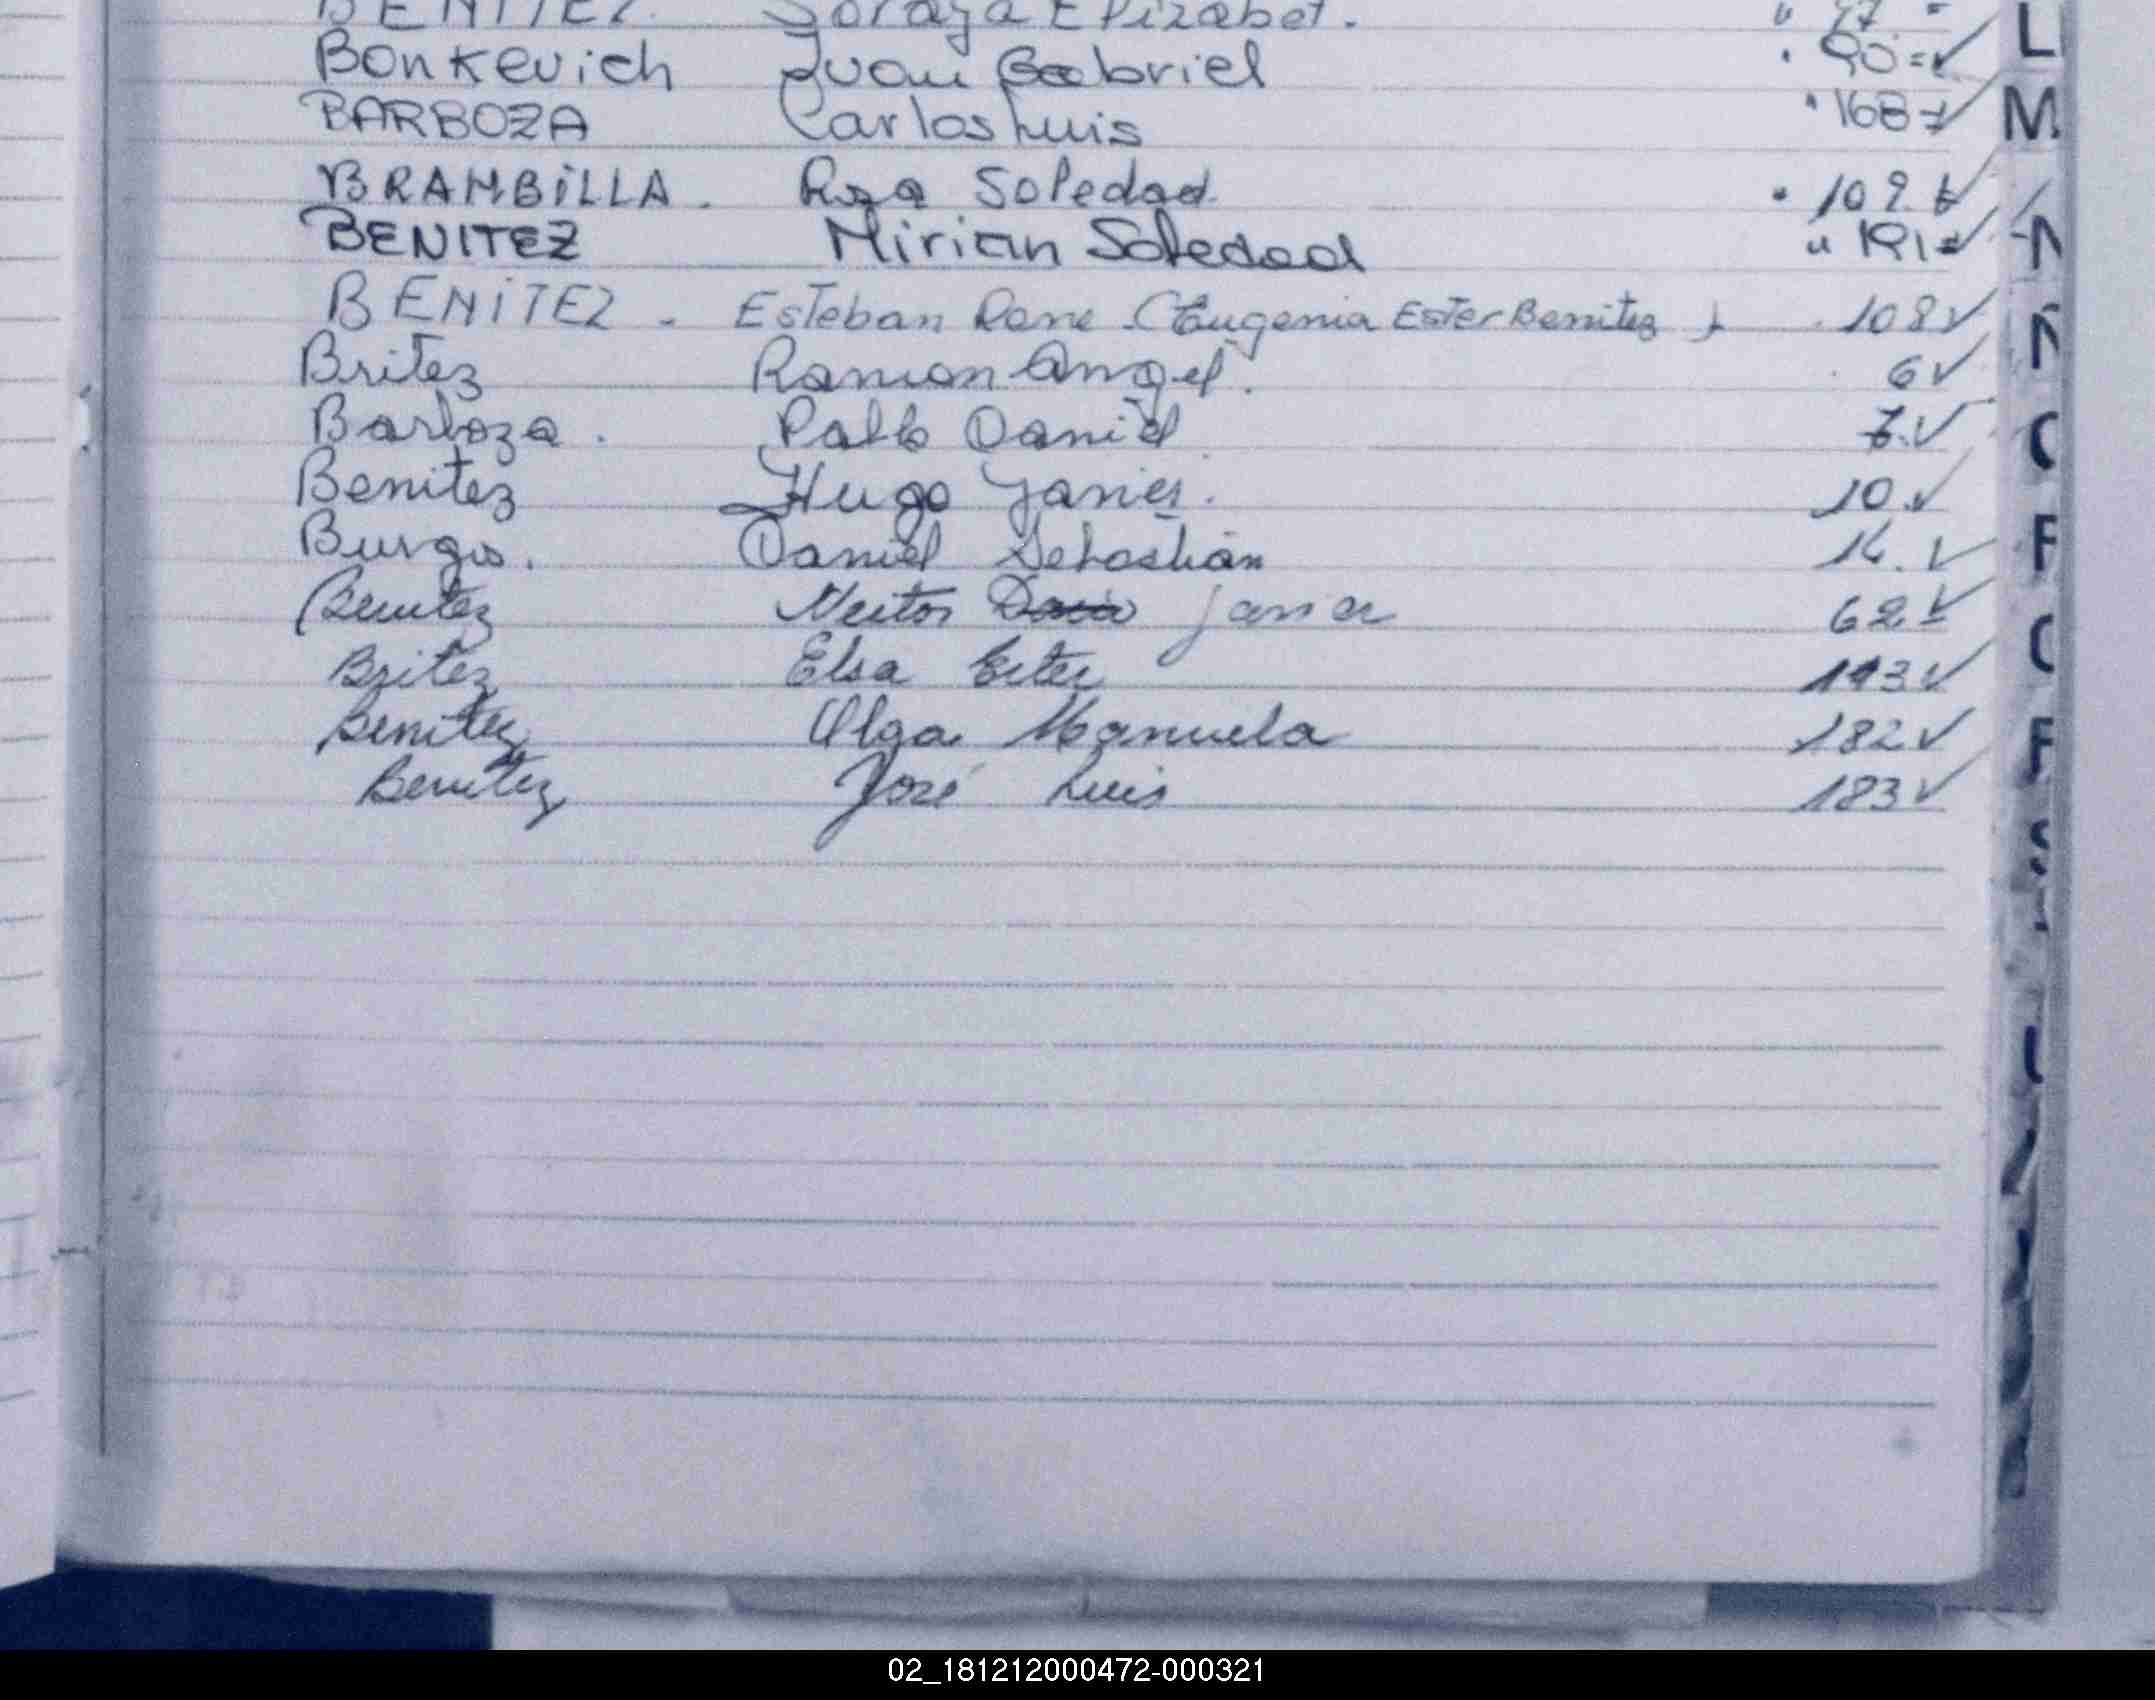 BENITEZ Soraya Elizabet. " 77 =
Bonkevich Juan Gabriel " 90 = ✓
BARBOZA Carlos Luis " 168 = ✓
BRAMBiLLA. Rosa Soledad. " 109 = ✓
BENITEZ Mirian Soledad " 191 = ✓
BENITEZ - Esteban Rene (Eugenia Ester Benitez) 108 ✓
Britez Ramon Angel. 6 ✓
Barboza. Pablo Daniel 7. ✓
Benitez Hugo Javier. 10 ✓
Burgos. Daniel Sebastián 14. ✓
Benitez Nestor Javier 62 ✓
Britez Elsa Ester 193 ✓
Benitez Olga Manuela 182 ✓
Benitez José Luis 183 ✓
L
M
N
Ñ
02_181212000472-000321